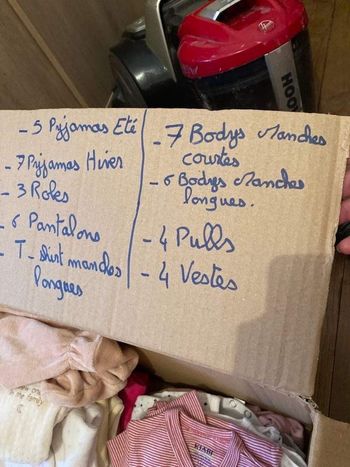 - 5 Pyjamas Eté
- 7 Pyjamas Hiver
- 3 Robes
- 6 Pantalons
- T-shirt manches
longues
- 7 Bodys Manches
courtes
- 6 Bodys Manches
longues.
- 4 Pulls
- 4 Vestes
HOO
KIABI